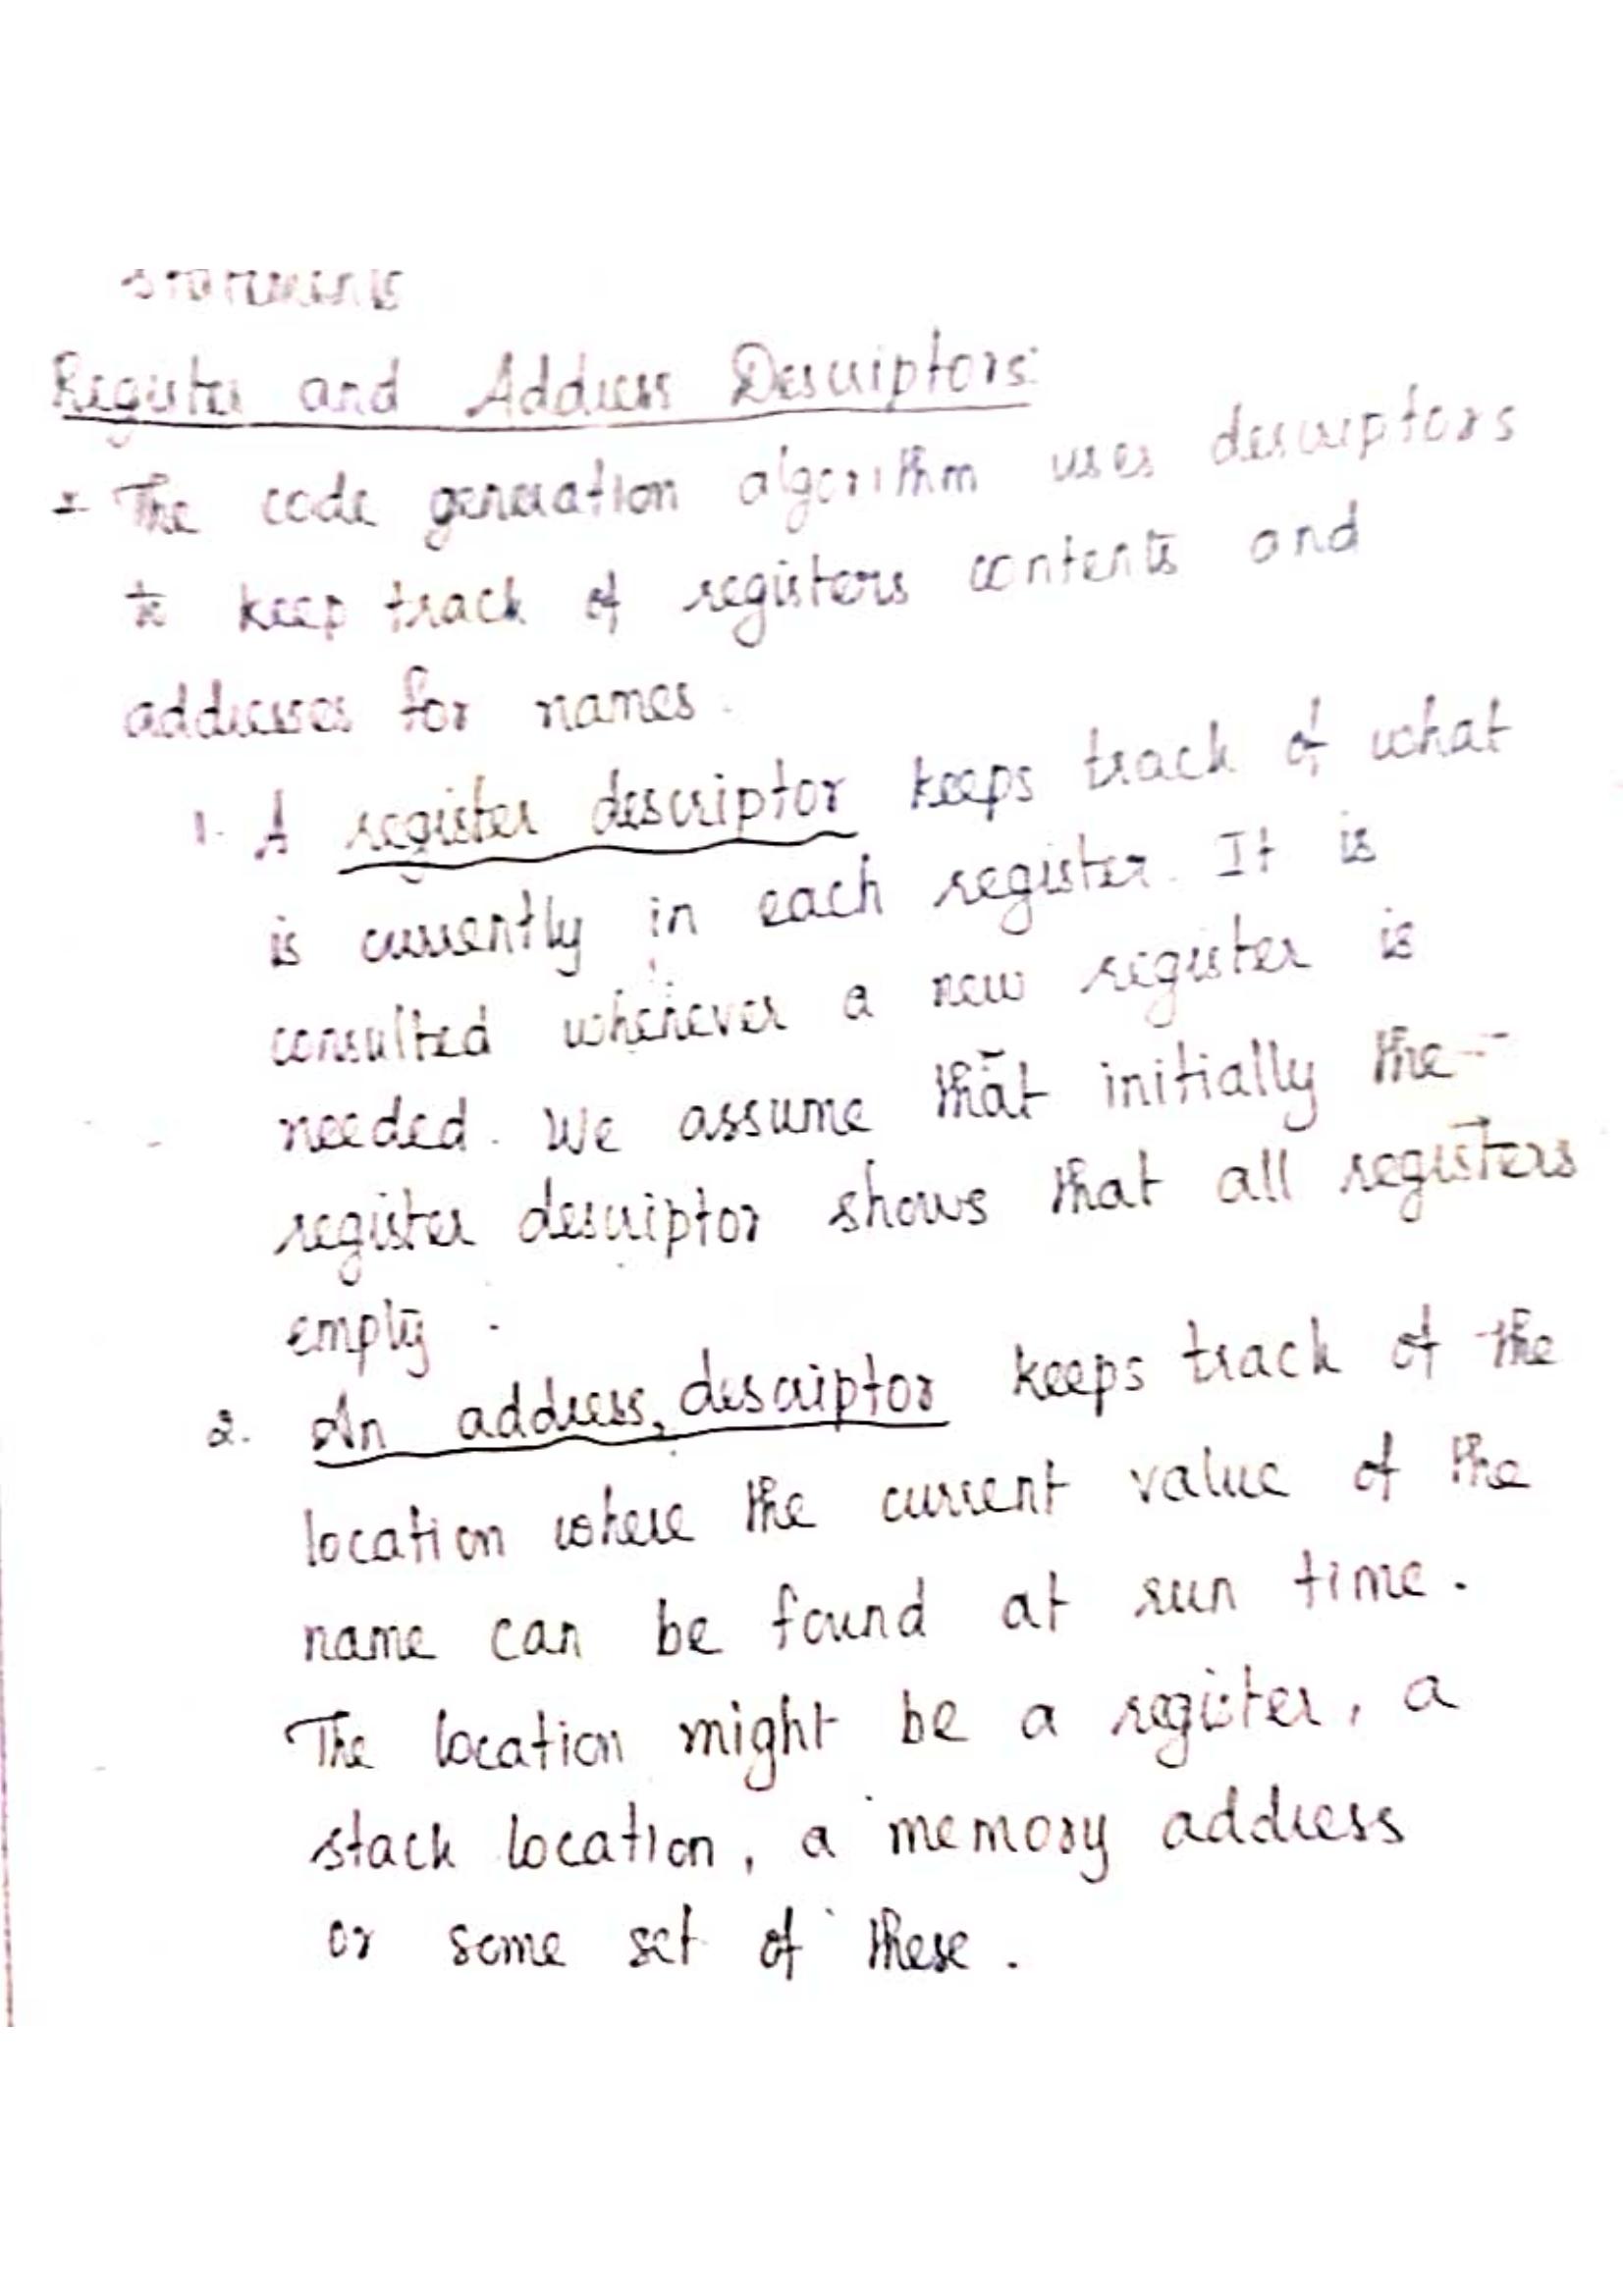 statements
Register and Address Descriptors:
The code generation algorithm uses descriptors
to keep track of registers contents and
addresses for names.
1. A register descriptor keeps track of what
is currently in each register. It is
consulted whenever a new register is
needed. We assume that initially the
register descriptor shows that all registers
empty.
2. An address descriptor keeps track of the
location where the current value of the
name can be found at run time.
The location might be a register, a
stack location, a memory address
or some set of these.